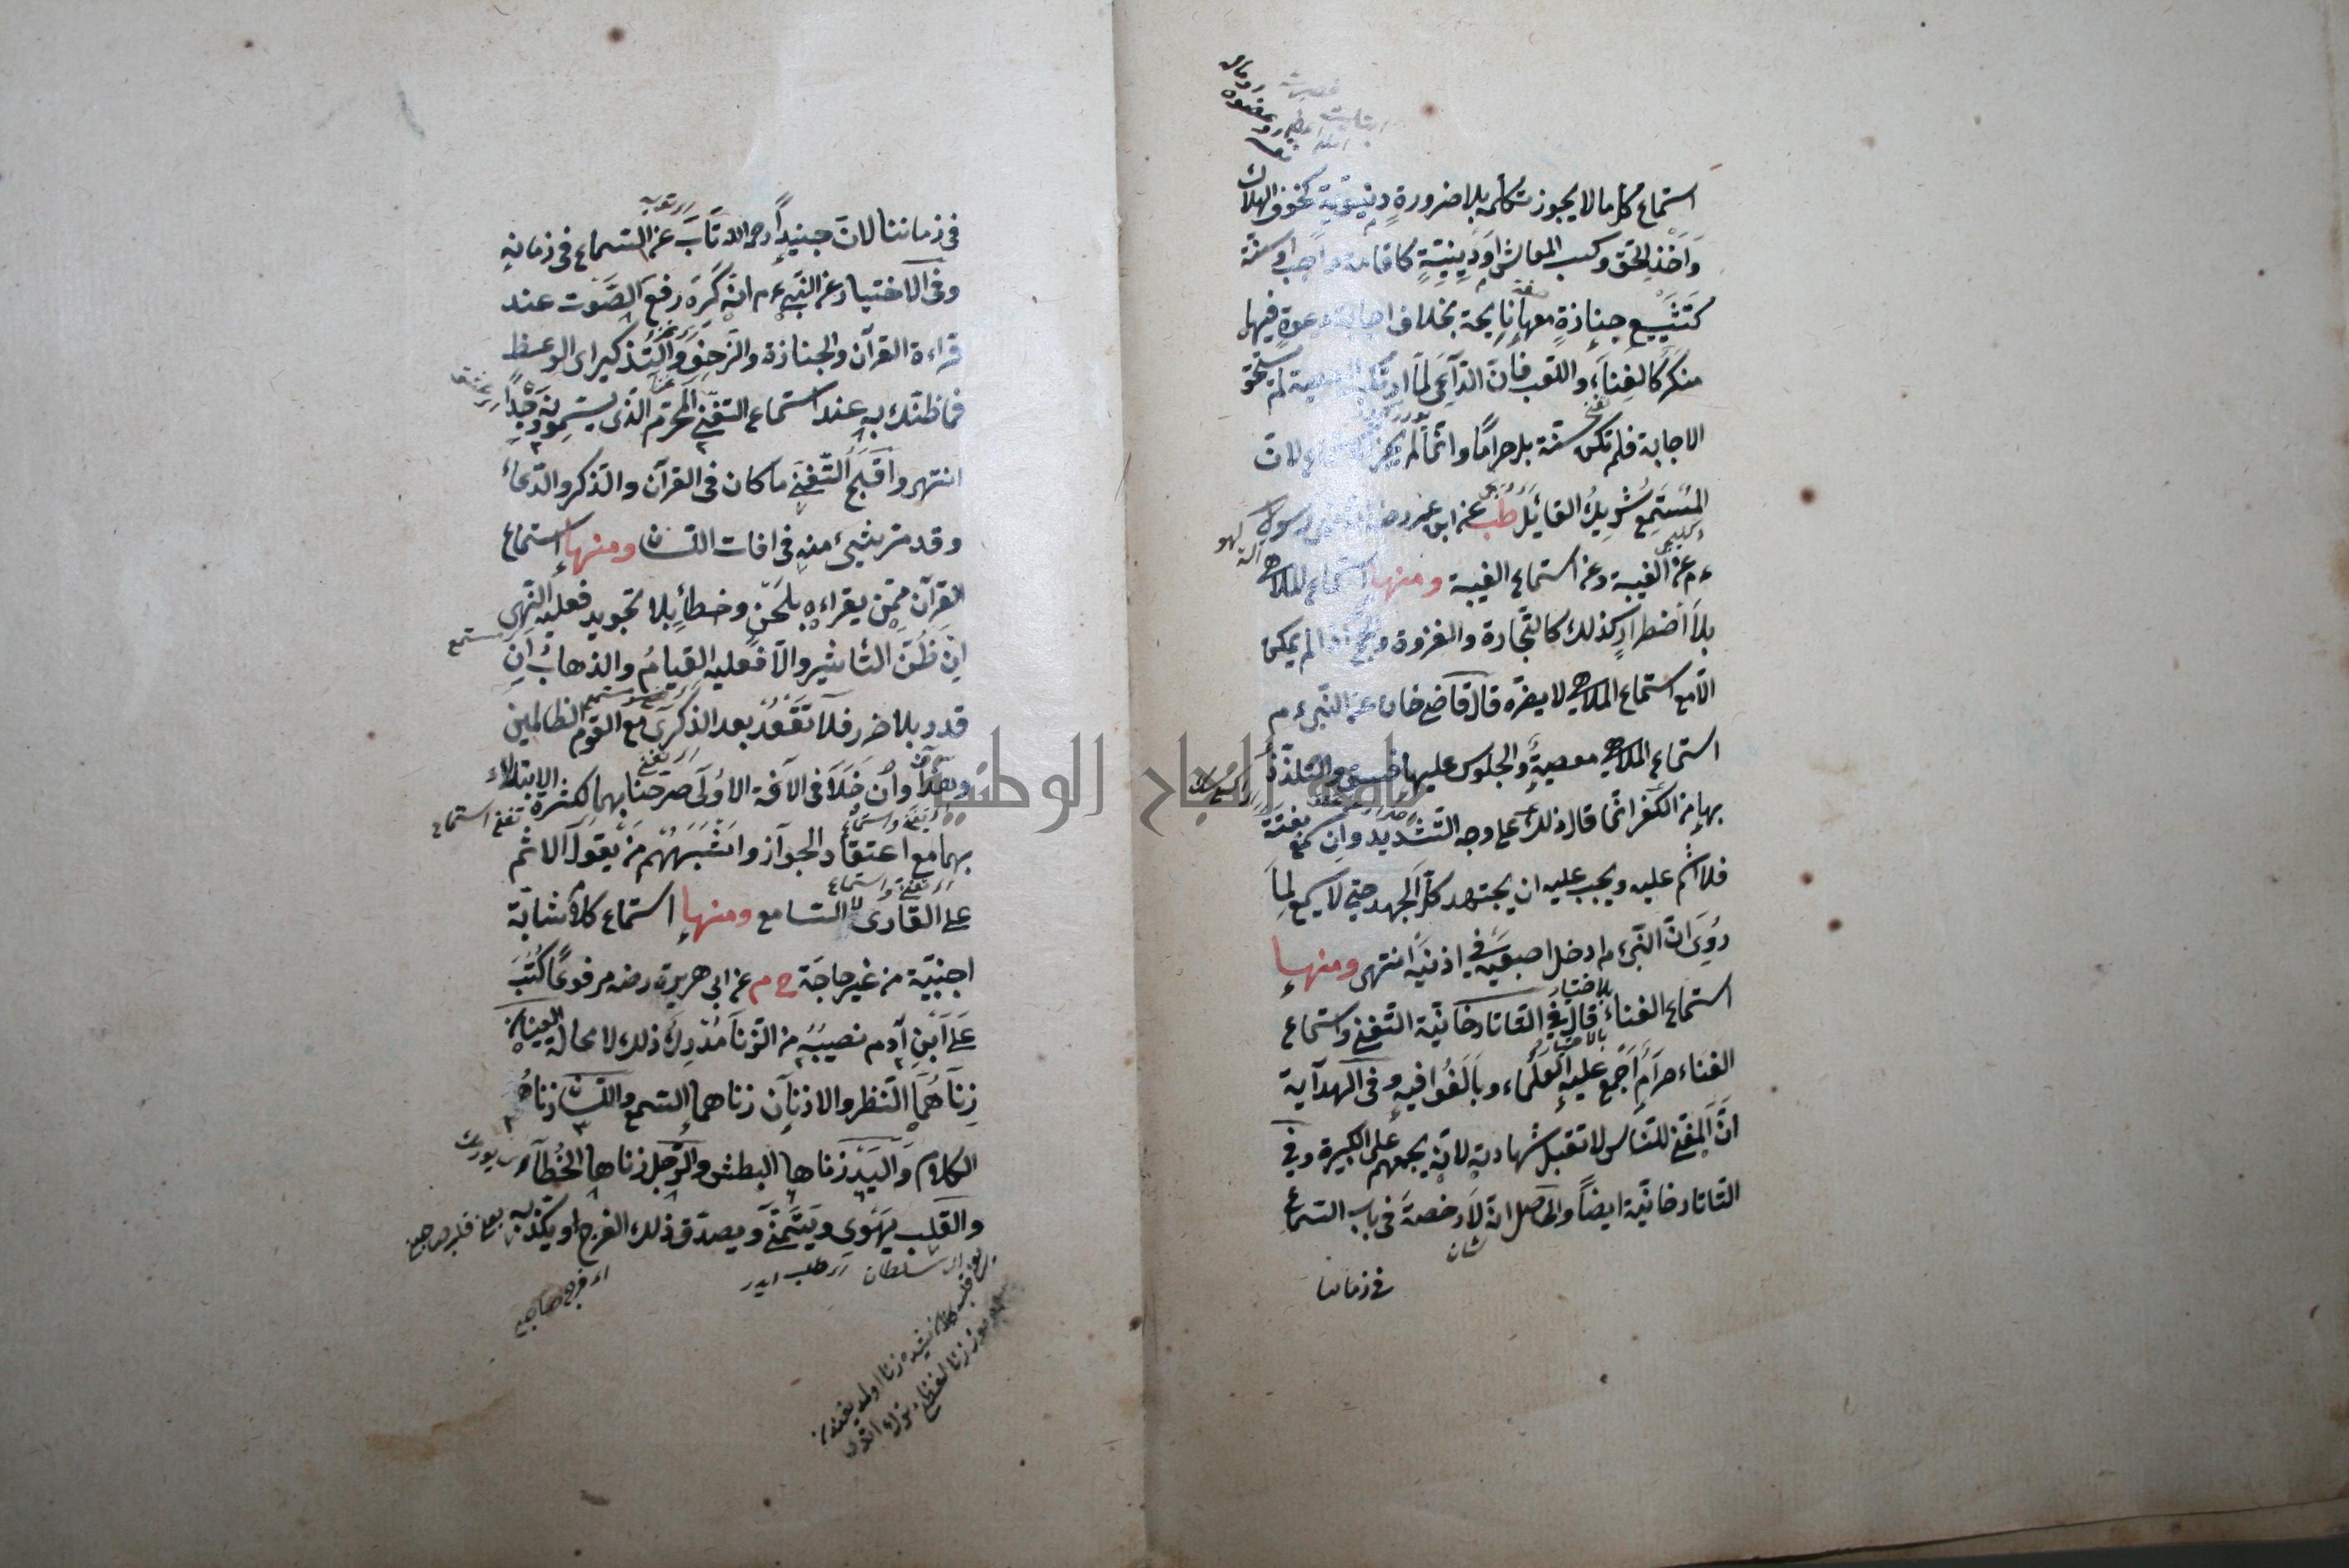 استماع كل ما لا يجوز تكلمه بلا ضرورة دنيوية كخوف الهلاك
وَاَخْذ الحق وكسب المعاش اَوْ دِينِيّةٍ كاقامة واجب او سنّة
كَتَشْيِيعِ جنازةٍ معها نايحة بخلاف اجابة دعوةٍ فيها
منكرٌ كالغِناءِ واللعب فانّ الدّاعى لمّا ارتكب المعصية لم يستحق
الاجابة فلم تكن سنّة بل حرامًا وانّما لم يجز لانّ
المُسْتَمِع شَرِيكُ القائِل طب عن ابن عمر رسول
ءم عن الغيبة وعن استماع الغيبة ومنها استماع الملاهى
بلا اضطرارٍ كذلك كالتّجارة والغزوة والحج اذا لم يمكن
الّا مع استماع الملاهى لا يضرّه قال قاضى خان عن النّبىءم
استماع الملاهى معصيةٌ والجلوس عليها فسق والتلذّذ
بها من الكفر انّما قال ذلك على وجه التشديد وان سمع بغتةً
فلا اثم عليه ويجب عليه ان يجتهد كلّ الجهد حتى لا يسمع لِمَا
رُوِىَ انّ النّبىءم ادخل اصبعيه فى اذنيه انتهى ومنها
استماع الغناء قال فى التاتارخانيّة التغنى واستماع
الغناء حرام اَجْمع عليه العلماء وبالَغُوا فيه وفى الهداية
انّ المغنى للنّاس لا تقبل شهادته لانّه يجمعهم على الكبيرة وفى
التّاتارخانيّة ايضاً والحاصل انّه لا رخصة فى باب السّماع
شان
فى زماننا
فى زماننا لانّ جنيداً رحمه الله تَابَ عن السّماع فى زمانه
وفى الاختيار عن النّبىءم انّه كَرِهَ رفع الصّوت عند
قراءة القرآن والجنازة والزحف والتّذكير اى الوعظ
فما ظنّك به عند استماع التغنّى المحرّم الّذى يسمّونه وَجْداً
انتهى واَقبح التّغنى ما كان فى القرآن والذكر والدّعاء
وقد مرّ شىء منه فى افات اللسان ومنها استماع
القرآن مِمّن يقراءه بلحن وخطأٍ بلا تجويد فعليه النّهى
اِن ظُنّ التأثير والّا فعليه القيامُ والذهابُ اِن
قدر بلا ضرر فلا تَقْعُدْ بعد الذكرى مع القوم الظالمين
وهذا وان دخلا فى الآفة الاُولى صرحنا بهما لكثرة الابتلاء
بهما مع اعتقاد الجواز واَشْبَهُهُم مَن يقول الاثم
على القارى لا السّامع ومنها استماع كلام شابّة
اجنبيّة من غير حاجَة خ م عن ابى هريرة رضه مرفوعًا كُتبَ
عَلَى ابْنِ آدم نصيبُه من الزّنا مُدْرِك ذلك لا محالة العينان
زناهُمَا النّظر والاذنان زناهما السمع واللسان زناه
الكلام واليد زناها البطش والرِّجل زناها الخُطاء
والقلب يَهْوَى ويَتَمَنّى ويصدّق ذلك الفرج او يكذّبه
جامعة النجاح الوطنية